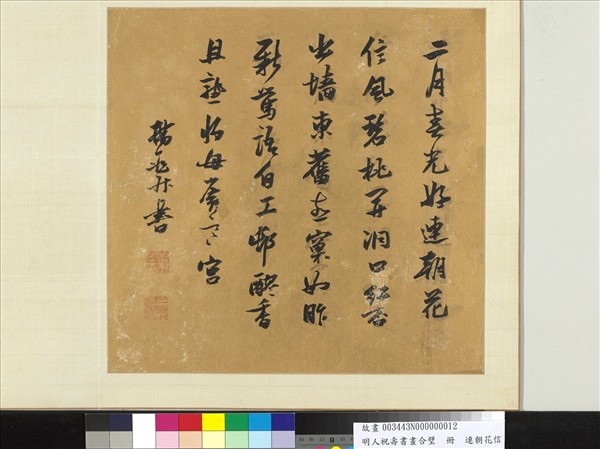 二月春光好連朝花
信風碧桃開洞口紅杏
出墻東舊燕窠如昨
新鶯語自工邨醪香
且熟 宮
書
故畫 003443N000000012
明人祝壽書畫合璧 冊 連朝花信